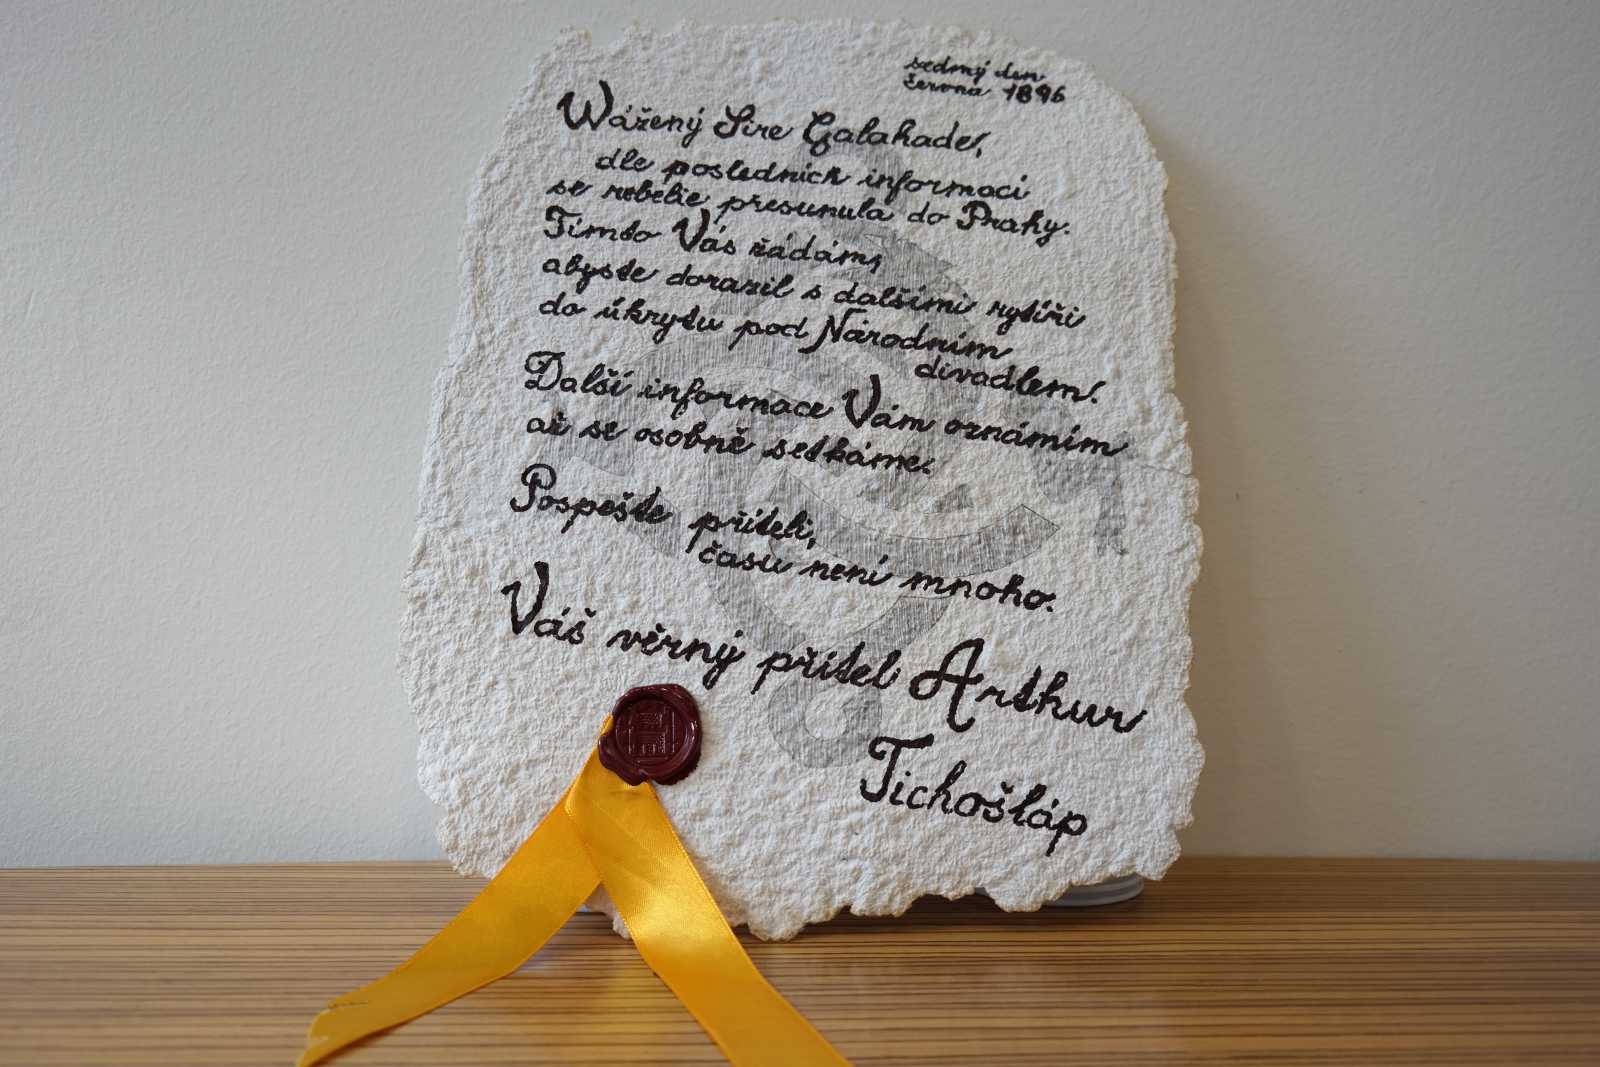 sedmý den
června 1896
Wážený Sire Galahade,
dle posledních informací
se rebelie přesunula do Prahy.
Tímto Vás žádám,
abyste dorazil s dalšími rytíři
do úkrytu pod Národním
divadlem.
Další informace Vám oznámím
až se osobně setkáme.
Pospěšte příteli,
času není mnoho.
Váš věrný přítel Arthur
Tichošláp